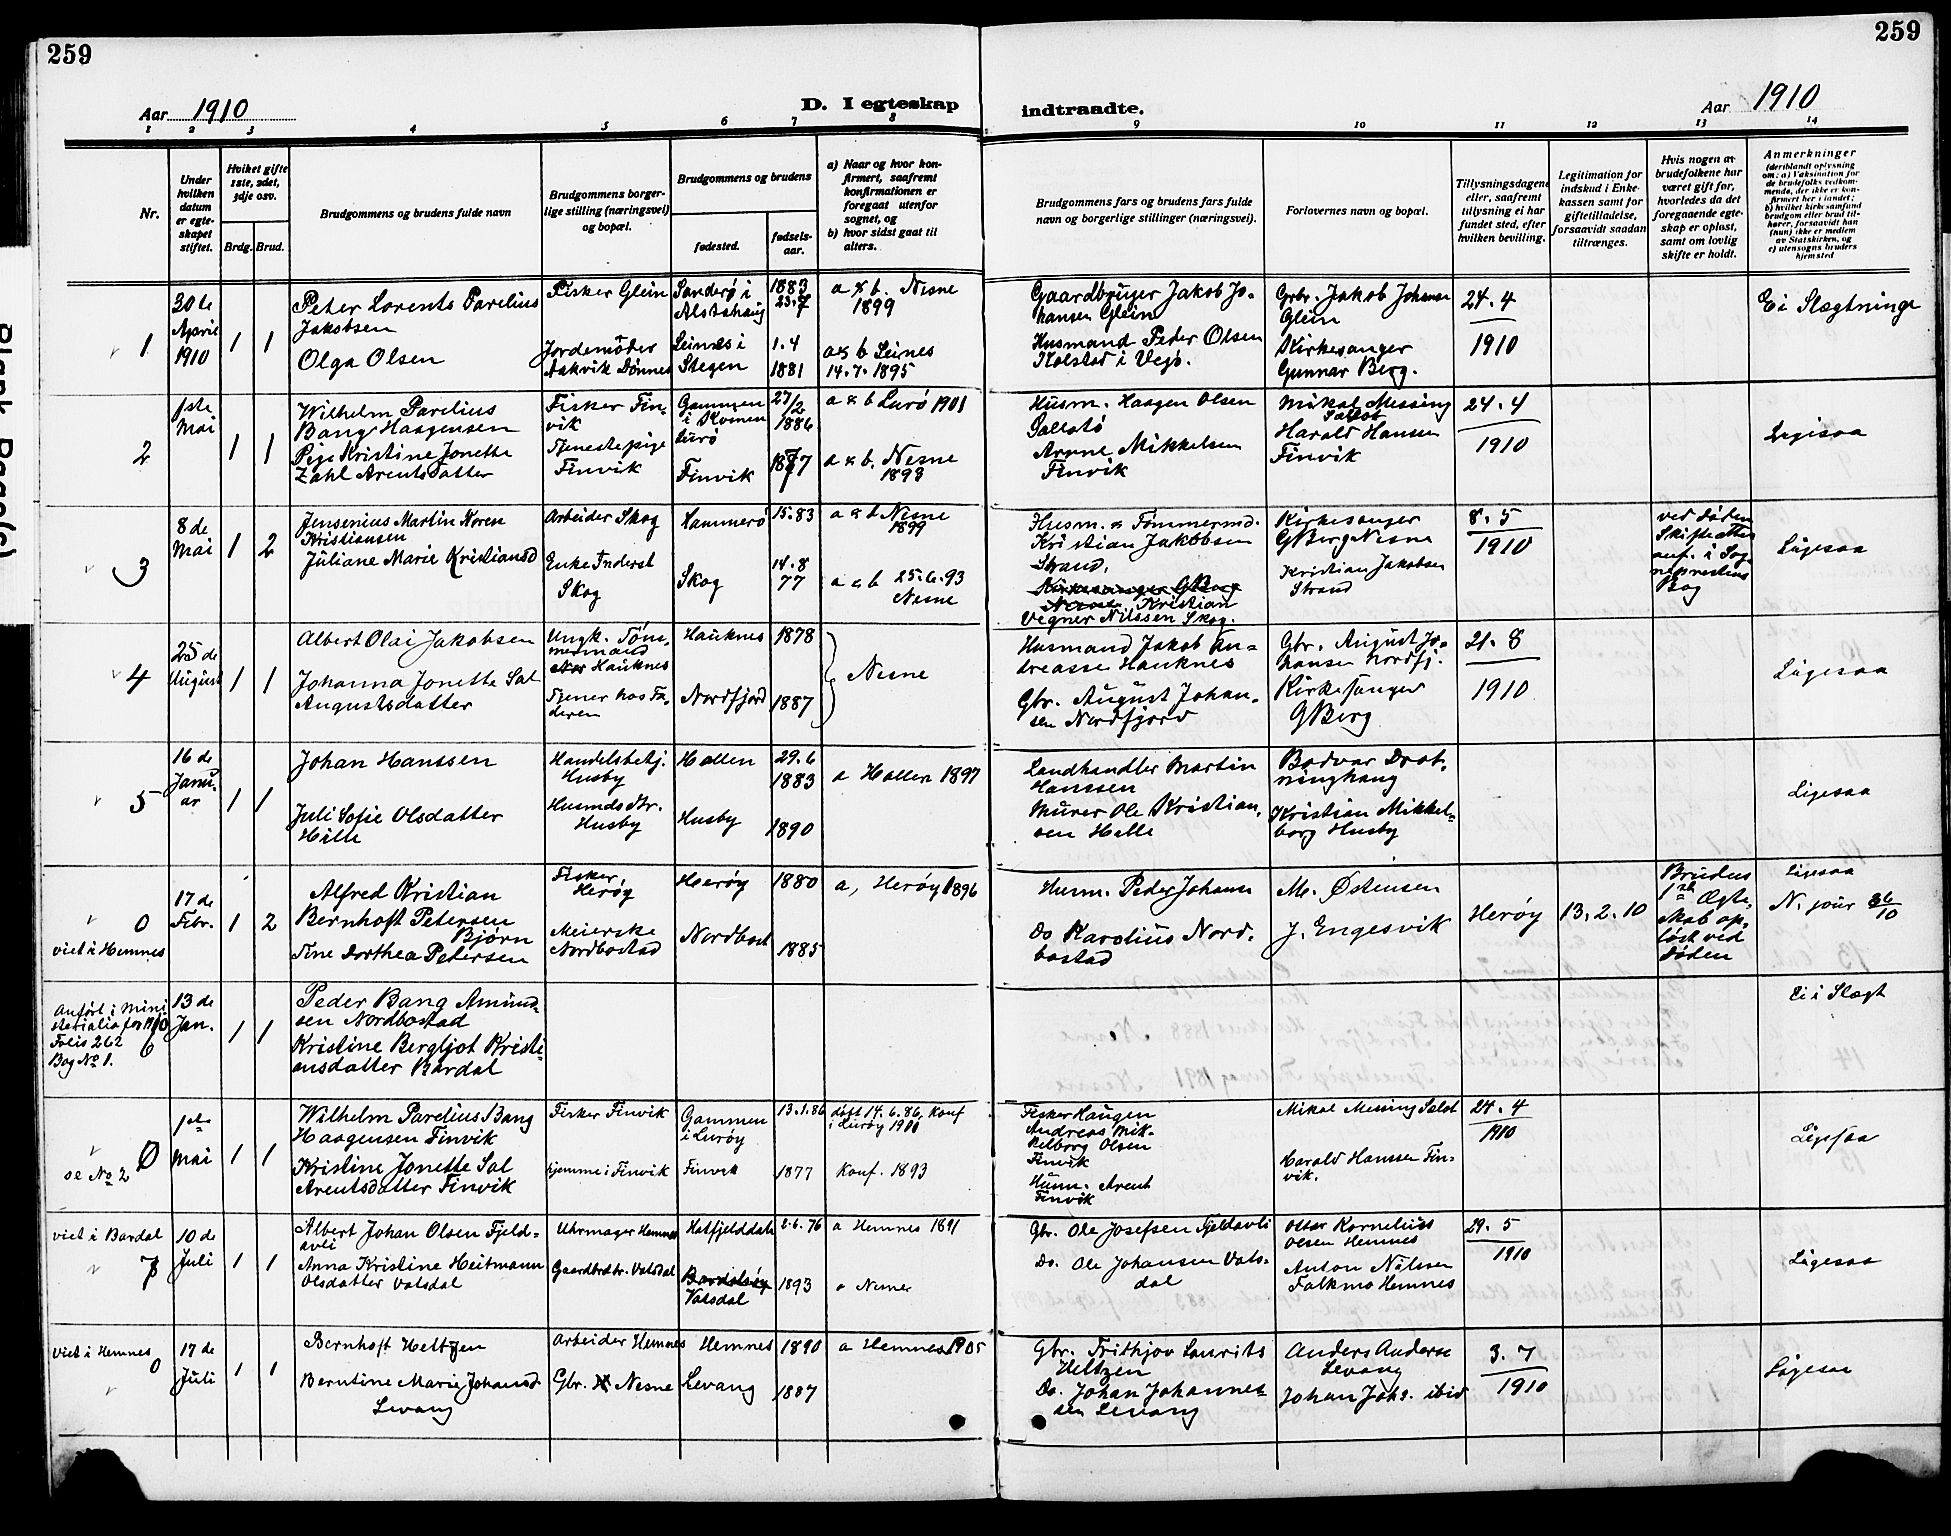 259
259
Aar 1910
D. I egteskap
indtraadte.
Aar 1910
1 2 3 4 5 6 7 8 9 10 11 12 13 14
Nr.
Under hvilken datum er egteskapet stiftet.
Hvilket gifte 1ste, 2det, 3dje osv.
Brdg. Brud.
Brudgommens og brudens fulde navn
Brudgommens borgerlige stilling (næringsvei) og bopæl.
Brudgommens og brudens
fødested.
fødselsaar.
a) Naar og hvor konfirmert, saafremt konfirmationen er foregaat utenfor sognet, og
b) hvor sidst gaat til alters.
Brudgommens fars og brudens fars fulde navn og borgerlige stillinger (næringsvei).
Forlovernes navn og bopæl.
Tillysningsdagene eller, saafremt tillysning ei har fundet sted, efter hvilken bevilling.
Legitimation for indskud i Enkekassen samt for giftetilladelse, forsaavidt saadan tiltrænges.
Hvis nogen av brudefolkene har været gift før, hvorledes da det foregaaende egteskap er opløst, samt om lovlig skifte er holdt.
Anmerkninger
(deriblandt oplysning om: a) Vaksination for de brudefolks vedkommende, der ikke er konfirmert her i landet; b) hvilket kirkesamfund brudgom eller brud tilhører, forsaavidt han (hun) ikke er medlem av Statskirken, og c) utensogns bruders hjemsted
1
30te April 1910
1 1
Peter Lorents Parelius Jakobsen
Olga Olsen
Fisker Glein
Jordemoder Aakvik Dønnes
Sanderø i Alstahaug
Leinnes i Stegen
1883 23.7
1.4 1881
a & b. Nesne 1899
a & b Leines 14.7.1895
Gaardbruger Jakob Johansen Glein
Husmand Peder Olsen Holstad i Vega.
Grbr. Jakob Johanse Glein
Kirkesanger Gunnar Berg.
24.4 1910
Ei Slægtninge
2
1ste Mai
1 1
Wilhelm Parelius Bang Haagensen
Pige Kristine Jonette Zahl Arentsdatter
Fisker Finvik
Tjenestepige Finvik
Gammen i Kvinen Lurø
Finvik
27/2 1886
1877
a & b Lurø 1901
a & b. Nesne 1893
Husm. Haagen Olsen
Arnne Mikkelsen Finvik
Mikal Messing
Harald Hansen Finvik
24.4 1910
Ligesaa
3
8de Mai
1 2
Jensenius Martin Koren Kristiansen
Juliane Marie Kristiansd
Arbeider Skog
Enke Inderst Skog
Hammerø
Skog
15.83
14.8 77
a & b Nesne 1899
a & b 25.6.93 Nesne
Husm. & Tømmermd. Kristian Jakobsen Strand.
Kirkesanger G Berg Nesne Kristian Vegner Nilssen Skog.
Kirkesanger G Berg Nesne
Kristian Jakobsen Strand
8.5 1910
ved Døden Skifteattest anf. i Sogneprestens Bog
Ligesaa
4
25de August
1 1
Albert Olai Jakobsen
Johanna Jonette Sal Augustsdatter
Ungk. Tømmermand Hauknes
Tjener hos Faderen
Hauknes
Nordfjord
1878
1887
Nesne
Husmand Jakob Andreasse Hauknes
Gbr. August Johansen Nordfjord
Gbr. August Johansen Nordfj.
Kirkesanger G Berg
21.8 1910
Ligesaa
5
16de Januar
1 1
Johan Hanssen
Juli Sofie Olsdatter Hille
Handelsbetj. Husby
Husmds dtr. Husby
Hallen
Husby
29.6 1883
1890
a Hallen 1897
Landhandler Martin Hanssen
Murer Ole Kristiansen Hille
Bodvar Drotninghaug
Kristian Mikkelborg Husby
Ligesaa
0
viet i Hemnes
17de Febr.
1 2
Alfred Kristian Bernhoft Petersen Bjørn
Tine Dorthea Petersen
Fisker, Herøy
Meierske Nordbostad
Herøy
Nordbost
1880
1885
a, Herøy 1896
Husm. Peder Johanse
Do Karolius Nordbostad
M. Østensen
J. Engesvik
Herøy
13.2.10
Brudens 1ste Ægteskab opløst ved Døden
Ligesaa
N. jour 36/10
Anført i Ministerialia for 1910 Folio 262 Bog No 1.
6
13de Jan.
1 1
Peder Bang Amundsen Nordbostad
Kristine Bergljot Kristiansdatter Bardal
Ei i Slægt
se No 2
0
1ste Mai
1 1
Wilhelm Parelius Bang Haagensen Finvik
Kristine Jonette Sal Arentsdatter Finvik
Fisker Finvik
hjemme i Finvik
Gammen i Lurøy
Finvik
13.1.86
1877
døbt 14.6.86, Konf i Lurøy 1900
Konf. 1893
Fisker Haugen Andreas Mikkelborg Olsen Finvik
Husm. Arent Finvik
Mikal Messing Salst
Harald Hanssen Finvik.
24.4 1910
Ligesaa
viet i Bardal
7
10de Juli
1 1
Albert Johan Olsen Fjeldavli
Anna Kristine Heitmann Olsdatter Valsdal
Uhrmager Hemnes
Gaardbrdtr. Valsdal
Hatfjelddale
Valsdal
2.6.76
1893
a Hemnes 1891
a Nesne
Gbr. Ole Josefsen Fjeldavli
Do. Ole Johansen Valsdal
Ottar Kornelius Olsen Hemnes
Anton Nilsen Falkmo Hemnes
29.5 1910
Ligesaa
viet i Hemnes
0
17de Juli
1 1
Bernhoft Heltzen
Berntine Marie Johansd. Levang
Arbeider Hemnes
Gbr. Nesne
Hemnes
Levang
1890
1887
a Hemnes 1905
Gbr. Frithjov Lauritz Heltzen
Do. Johan Johannessen Levang
Anders Anderse Levang
Johan Johs. ibid
3.7 1910
Ligesaa